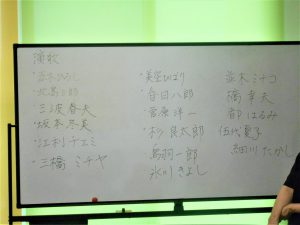 演歌
・五木ひろし
・北島三郎
・三波春夫
・坂本冬美
・江利チエミ
・三橋 ミチヤ
・美空ひばり
・春日八郎
・菅原洋一
・杉 良太郎
鳥羽一郎
氷川きよし
並木ミチコ
橘 幸夫
都 はるみ
伍代夏子
細川たかし